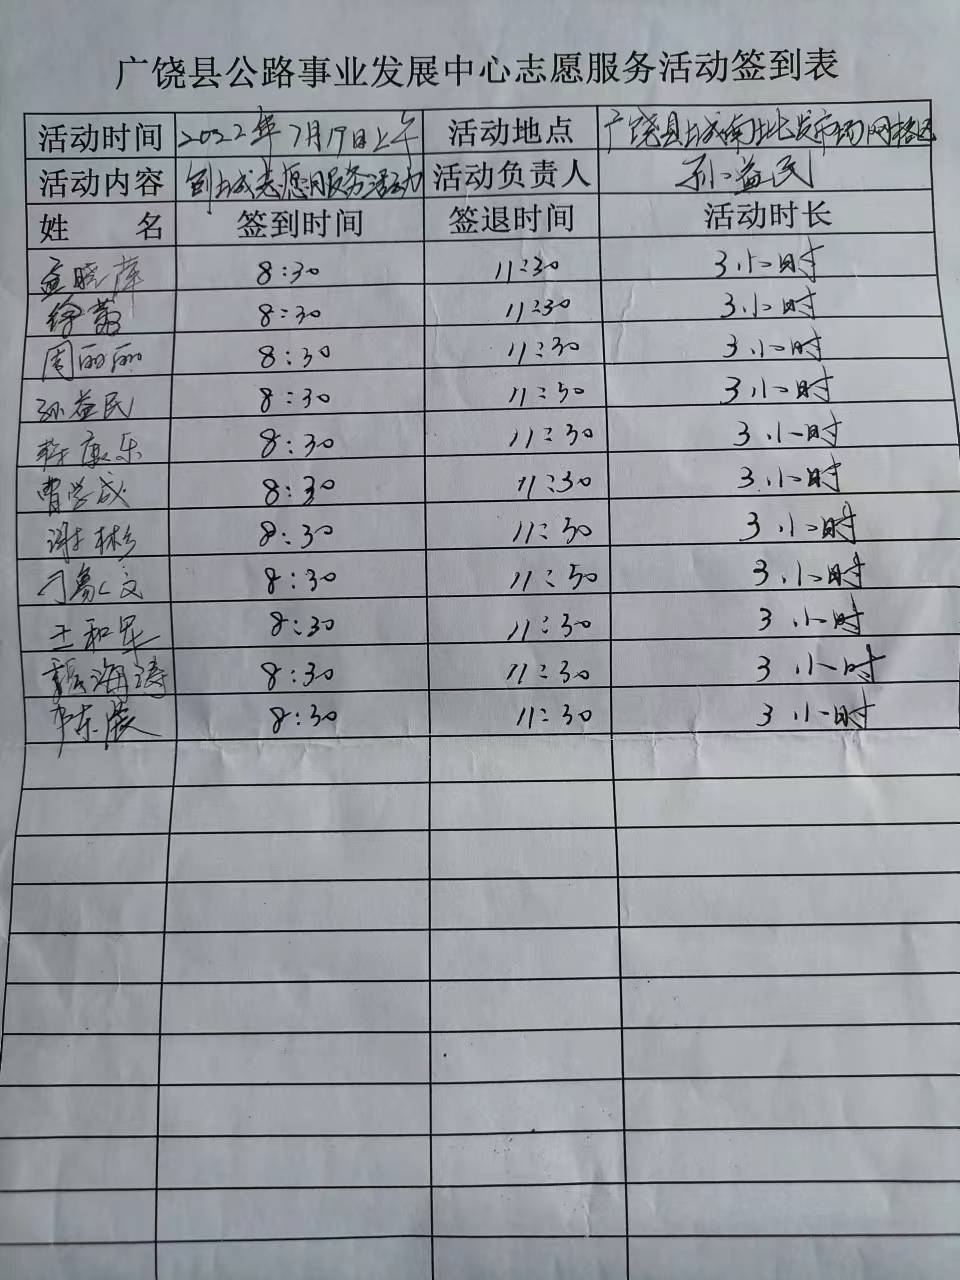 广饶县公路事业发展中心志愿服务活动签到表
活动时间 2022年7月19日上午 活动地点 广饶县城南批发市场网格区
活动内容 创城志愿服务活动 活动负责人 孙益民
姓 名 签到时间 签退时间 活动时长
孟晓萍 8:30 11:30 3小时
徐 8:30 11:30 3小时
周丽丽 8:30 11:30 3小时
孙益民 8:30 11:30 3小时
康乐 8:30 11:30 3小时
曹学成 8:30 11:30 3小时
谢彬 8:30 11:30 3小时
文 8:30 11:30 3小时
王和军 8:30 11:30 3小时
海涛 8:30 11:30 3小时
李东 8:30 11:30 3小时